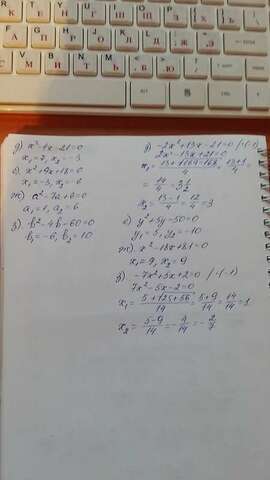 д) x²-4x-21=0
x₁=7, x₂=-3
е) x²+9x+18=0
x₁=-3, x₂=-6
ж) a²-7a+6=0
a₁=1, a₂=6
з) b²-4b-60=0
b₁=-6, b₂=10
д) -2x²+13x-21=0 /·(-1)
2x²-13x+21=0
x₁=(13+√169-168)/4=(13+1)/4=
=14/4=3½
x₂=(13-1)/4=12/4=3
е) y²+5y-50=0
y₁=5, y₂=-10
ж) x²-18x+81=0
x₁=9, x₂=9
з) -7x²+5x+2=0 /·(-1)
7x²-5x-2=0
x₁=(5+√25+56)/14=(5+9)/14=14/14=1
x₂=(5-9)/14=-4/14=-2/7